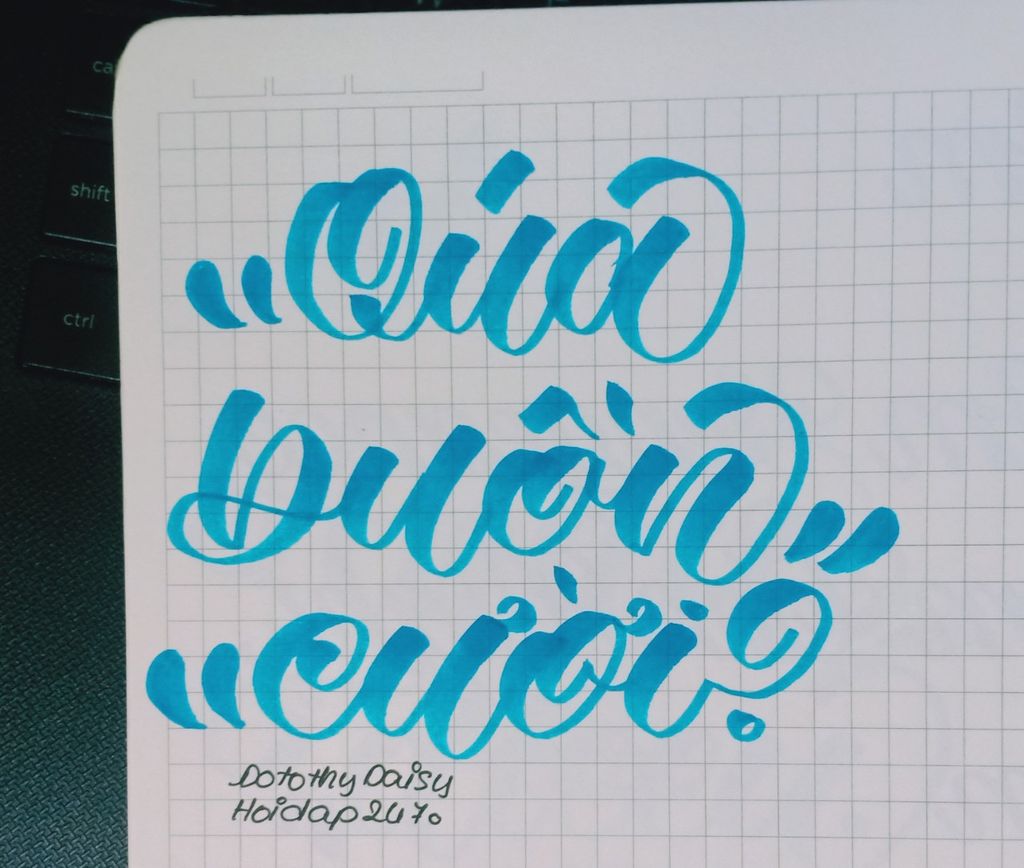 ca
shift
ctrl
“Qúa
buồn”
“cười?
Dotothy Daisy
Hoidap247.